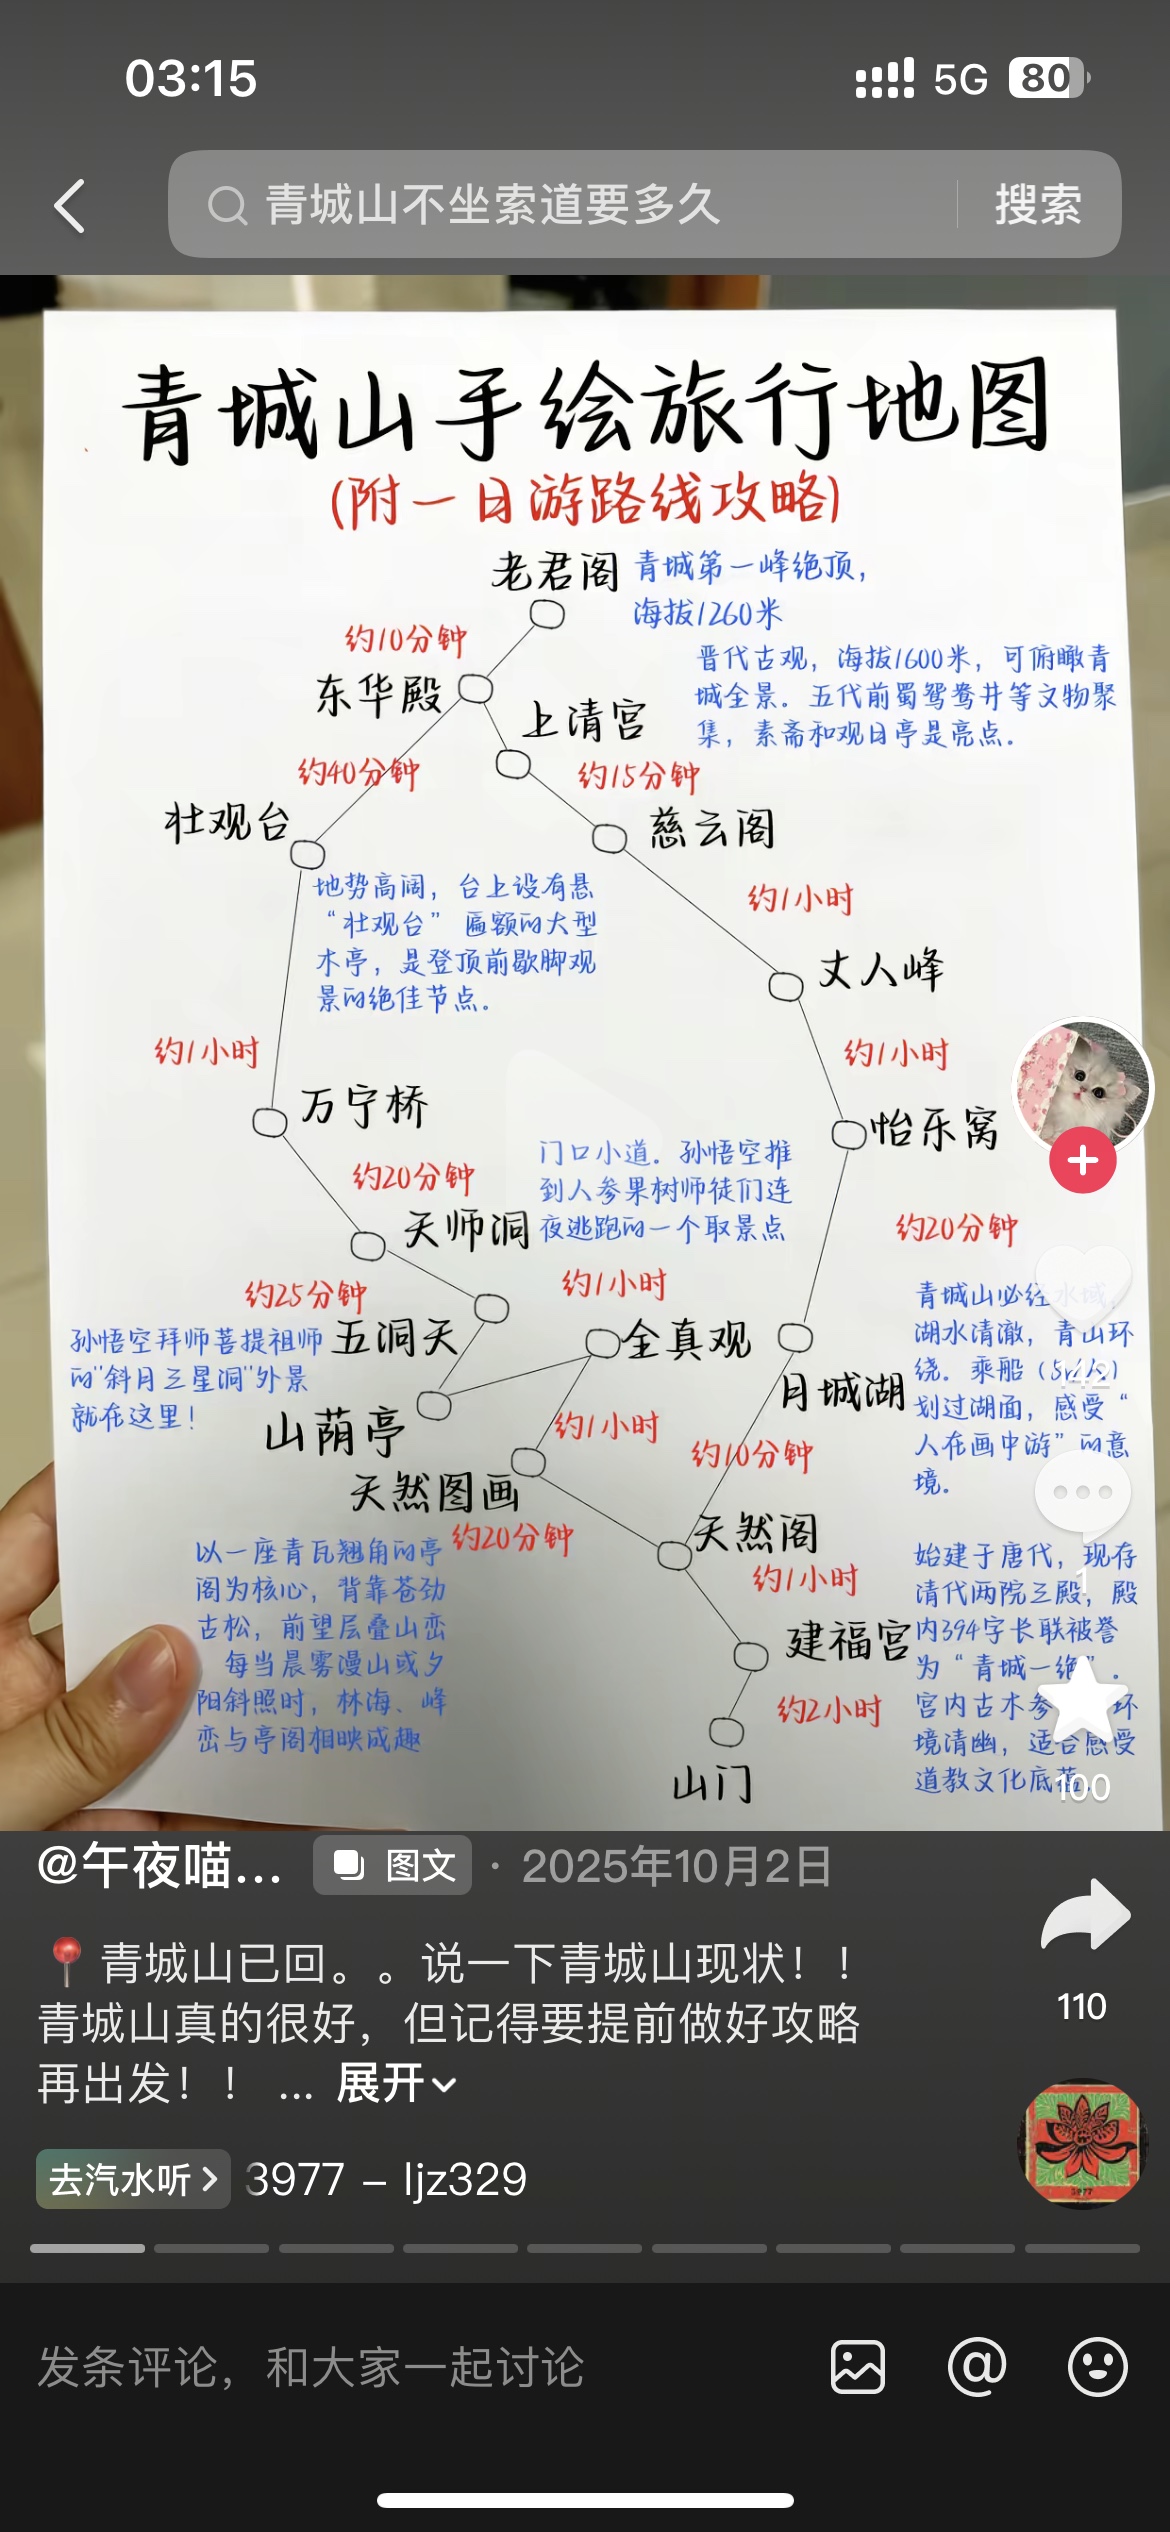 03:15
5G 80
青城山不坐索道要多久
搜索
青城山手绘旅行地图
(附一日游路线攻略)
老君阁
青城第一峰绝顶，
海拔1260米
约10分钟
东华殿
上清宫
晋代古观，海拔1600米，可俯瞰青
城全景。五代前蜀鸳鸯井等文物聚
集，素斋和观日亭是亮点。
约40分钟
约15分钟
壮观台
慈云阁
地势高阔，台上设有悬
“壮观台” 匾额的大型
木亭，是登顶前歇脚观
景的绝佳节点。
约1小时
丈人峰
约1小时
约1小时
万宁桥
怡乐窝
约20分钟
门口小道．孙悟空推
到人参果树师徒们连
夜逃跑的一个取景点
天师洞
约20分钟
约25分钟
约1小时
孙悟空拜师菩提祖师
的"斜月三星洞"外景
就在这里！
五洞天
全真观
月城湖
青城山必经水域，
湖水清澈，青山环
绕。乘船
划过湖面，感受“
人在画中游”的意
境。
142
山荫亭
约1小时
约10分钟
天然图画
约20分钟
天然阁
以一座青瓦翘角的亭
阁为核心，背靠苍劲
古松，前望层叠山峦
每当晨雾漫山或夕
阳斜照时，林海、峰
峦与亭阁相映成趣
约1小时
建福宫
始建于唐代，现存
清代两院三殿，殿
内394字长联被誉
为“青城一绝”．
宫内古木参 环
境清幽，适合感受
道教文化底蕴．
1
100
约2小时
山门
@午夜喵... 图文 · 2025年10月2日
📍青城山已回。。说一下青城山现状！！
青城山真的很好，但记得要提前做好攻略
再出发！！ ... 展开
110
去汽水听 3977 – ljz329
3977
发条评论，和大家一起讨论